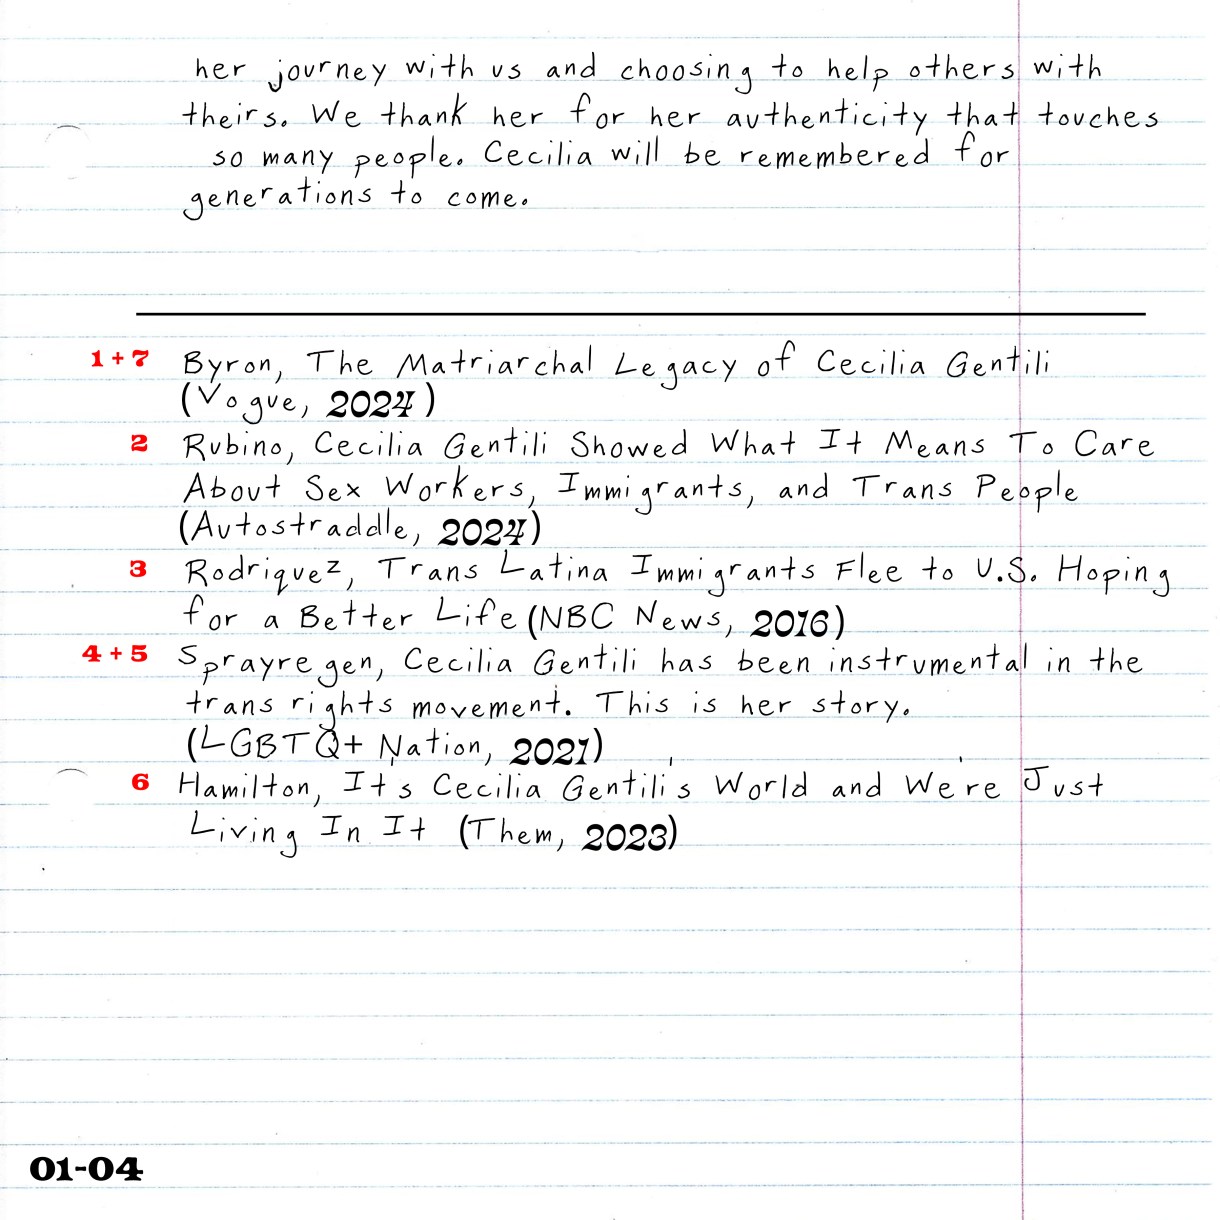 her journey with us and choosing to help others with
theirs. We thank her for her authenticity that touches
so many people. Cecilia will be remembered for
generations to come.
1+7 Byron, The Matriarchal Legacy of Cecilia Gentili
(Vogue, 2024)
2 Rubino, Cecilia Gentili Showed What It Means To Care
About Sex Workers, Immigrants, and Trans People
(Autostraddle, 2024)
3 Rodriquez, Trans Latina Immigrants Flee to U.S. Hoping
for a Better Life (NBC News, 2016)
4+5 Sprayregen, Cecilia Gentili has been instrumental in the
trans rights movement. This is her story.
(LGBTQ+ Nation, 2021)
6 Hamilton, It's Cecilia Gentili's World and We're Just
Living In It (Them, 2023)
01-04